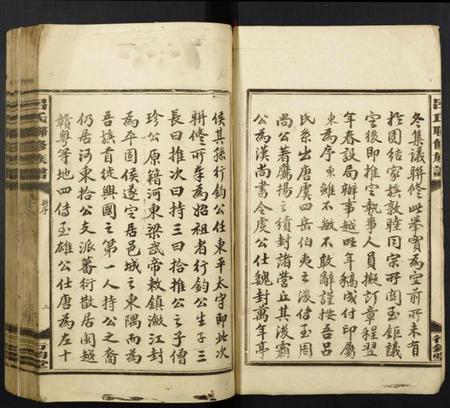 冬集議聯修此舉實為空前所未有
於團結家族敦睦同宗所關至鉅議
定後即推定執事人員擬訂章程翌
年春設局辦事越明年稿成付印屬
東為序東雖不敏不敢辭謹按吾呂
氏系出唐虞四岳伯夷之後侍至周
尚公著鷹揚之績封諸營丘其後霸
公為漢尚書令虔公仕魏封萬年亭
侯其孫行鈞公任東平太守即此次
聯修所奉為始祖者行鈞公生子三
長曰推次曰持三曰拾推公之子僧
珍公原籍河東梁武帝敕鎮瀫江封
為平固侯遂定居邑城之東隅而為
吾族首從興國之第一人持公之裔
仍居河東拾公支派蕃衍散居閩越
贛粵等地四傳至雄公仕唐為左十
呂氏聯修族譜
新序
二